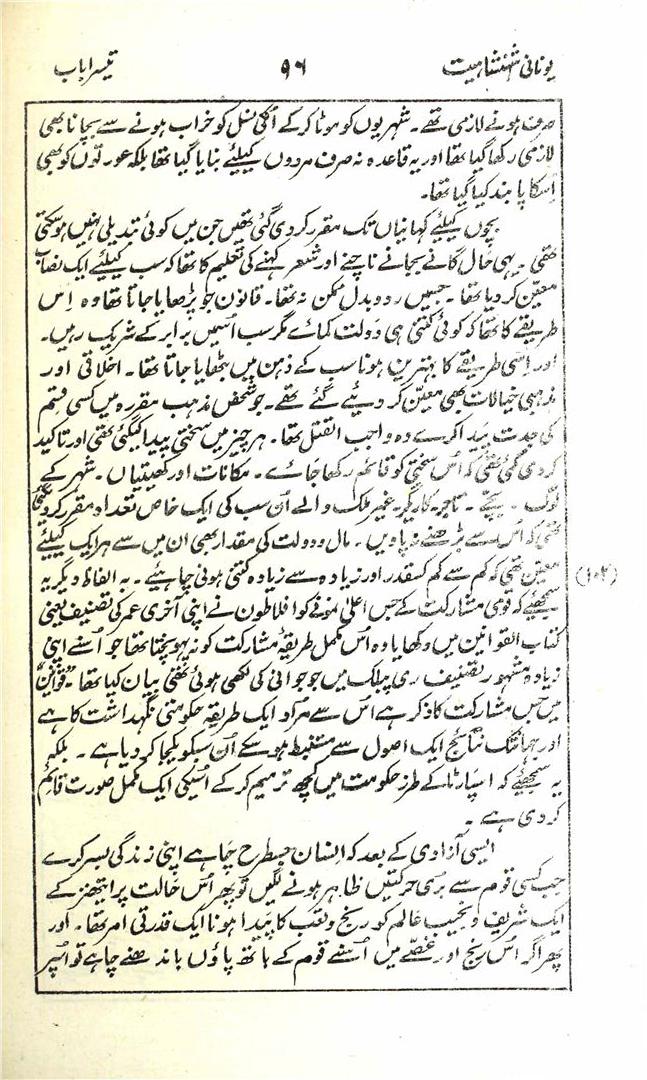 یونانی شہنشاہیت ۹۶ تیسرا باب
صرف ہونے لازمی تھے۔ شہریوں کو ہوٹا کرکے اُنکی نسل کو خراب ہونے سے بچانا بھی
لازمی رکھا گیا تھا اور یہ قاعدہ نہ صرف مردوں کیلئے بنایا گیا تھا بلکہ عورتوں کو بھی
اِسکا پابند کیا گیا تھا۔
بچوں کیلئے کہانیاں تک مقرر کردی گئی تھیں جن میں کوئی تبدیلی نہیں ہوسکتی
تھی۔ یہی حال گانے بجانے ناچنے اور شعر کہنے کی تعلیم کا تھا کہ سب کیلئے ایک نصاب
معیّن کردیا تھا۔ جسمیں ردوبدل ممکن نہ تھا۔ قانون جو پڑھایا جاتا تھا وہ اِس
طریقے کا تھا کہ کوئی کتنی ہی دولت کمائے مگر سب اُسمیں برابر کے شریک رہیں۔
اور اِسی طریقے کا بہترین ہونا سب کے ذہن میں بٹھایا جاتا تھا۔ اخلاقی اور
مذہبی خیالات بھی معیّن کردیئے گئے تھے۔ جو شخص مذہب مقررہ میں کسی قسم
کی جدت پیدا کرے وہ واجب القتل تھا۔ ہر چیز میں سختی پیدا کیگئی تھی اور تاکید
کردی گئی تھی کہ اُس سختی کو قائم رکھا جائے۔ مکانات اور کھیتیاں۔ شہر کے
لوگ۔ بچّے۔ تاجر۔ کاریگر۔ غیر ملک والے اُن سب کی ایک خاص تعداد مقرر کردیگئی
تھی کہ اُس سے بڑھنے نہ پاویں۔ مال و دولت کی مقدار بھی ان میں سے ہر ایک کیلئے
معیّن تھی کہ کم سے کم کسقدر اور زیادہ سے زیادہ کتنی ہونی چاہیے۔ بہ الفاظ دیگر یہ
(۱۰۲)
سمجھیئے کہ قومی مشارکت کے جس اعلیٰ نمونے کو افلاطون نے اپنی آخری عمر کی تصنیف یعنی
کتاب القوانین میں دکھایا وہ اس مکمل طریقۂ مشارکت کو نہ پہوچتا تھا جو اُسنے اپنی
زیادہ مشہور تصنیف ری پبلک میں جو جوانی کی لکھی ہوئی تھی بیان کیا تھا۔ ”قوانین“
میں جس مشارکت کا ذکر ہے اس سے مراد ایک طریقہ حکومتی نگہداشت کا ہے
اور جہانتک نتائج ایک اصول سے مستنبط ہوسکے اُن سبکو یکجا کردیا ہے۔ بلکہ
یہ سمجھیئے کہ اسپارٹا کے طرز حکومت میں کچھ ترمیم کرکے اُسیکی ایک مکمل صورت قائم
کردی ہے۔
ایسی آزادی کے بعد کہ انسان جسطرح چاہے اپنی زندگی بسر کرے
جب کسی قوم سے بری حرکتیں ظاہر ہونے لگیں تو پھر اُس حالت پر ایتھنز کے
ایک شریف و نجیب عالم کو رنج و تعب کا پیدا ہونا ایک قدرتی امر تھا۔ اور
پھر اگر اُس رنج اور غصّے میں اُسنے قوم کے ہاتھ پاؤں باندھنے چاہے تو اُسپر